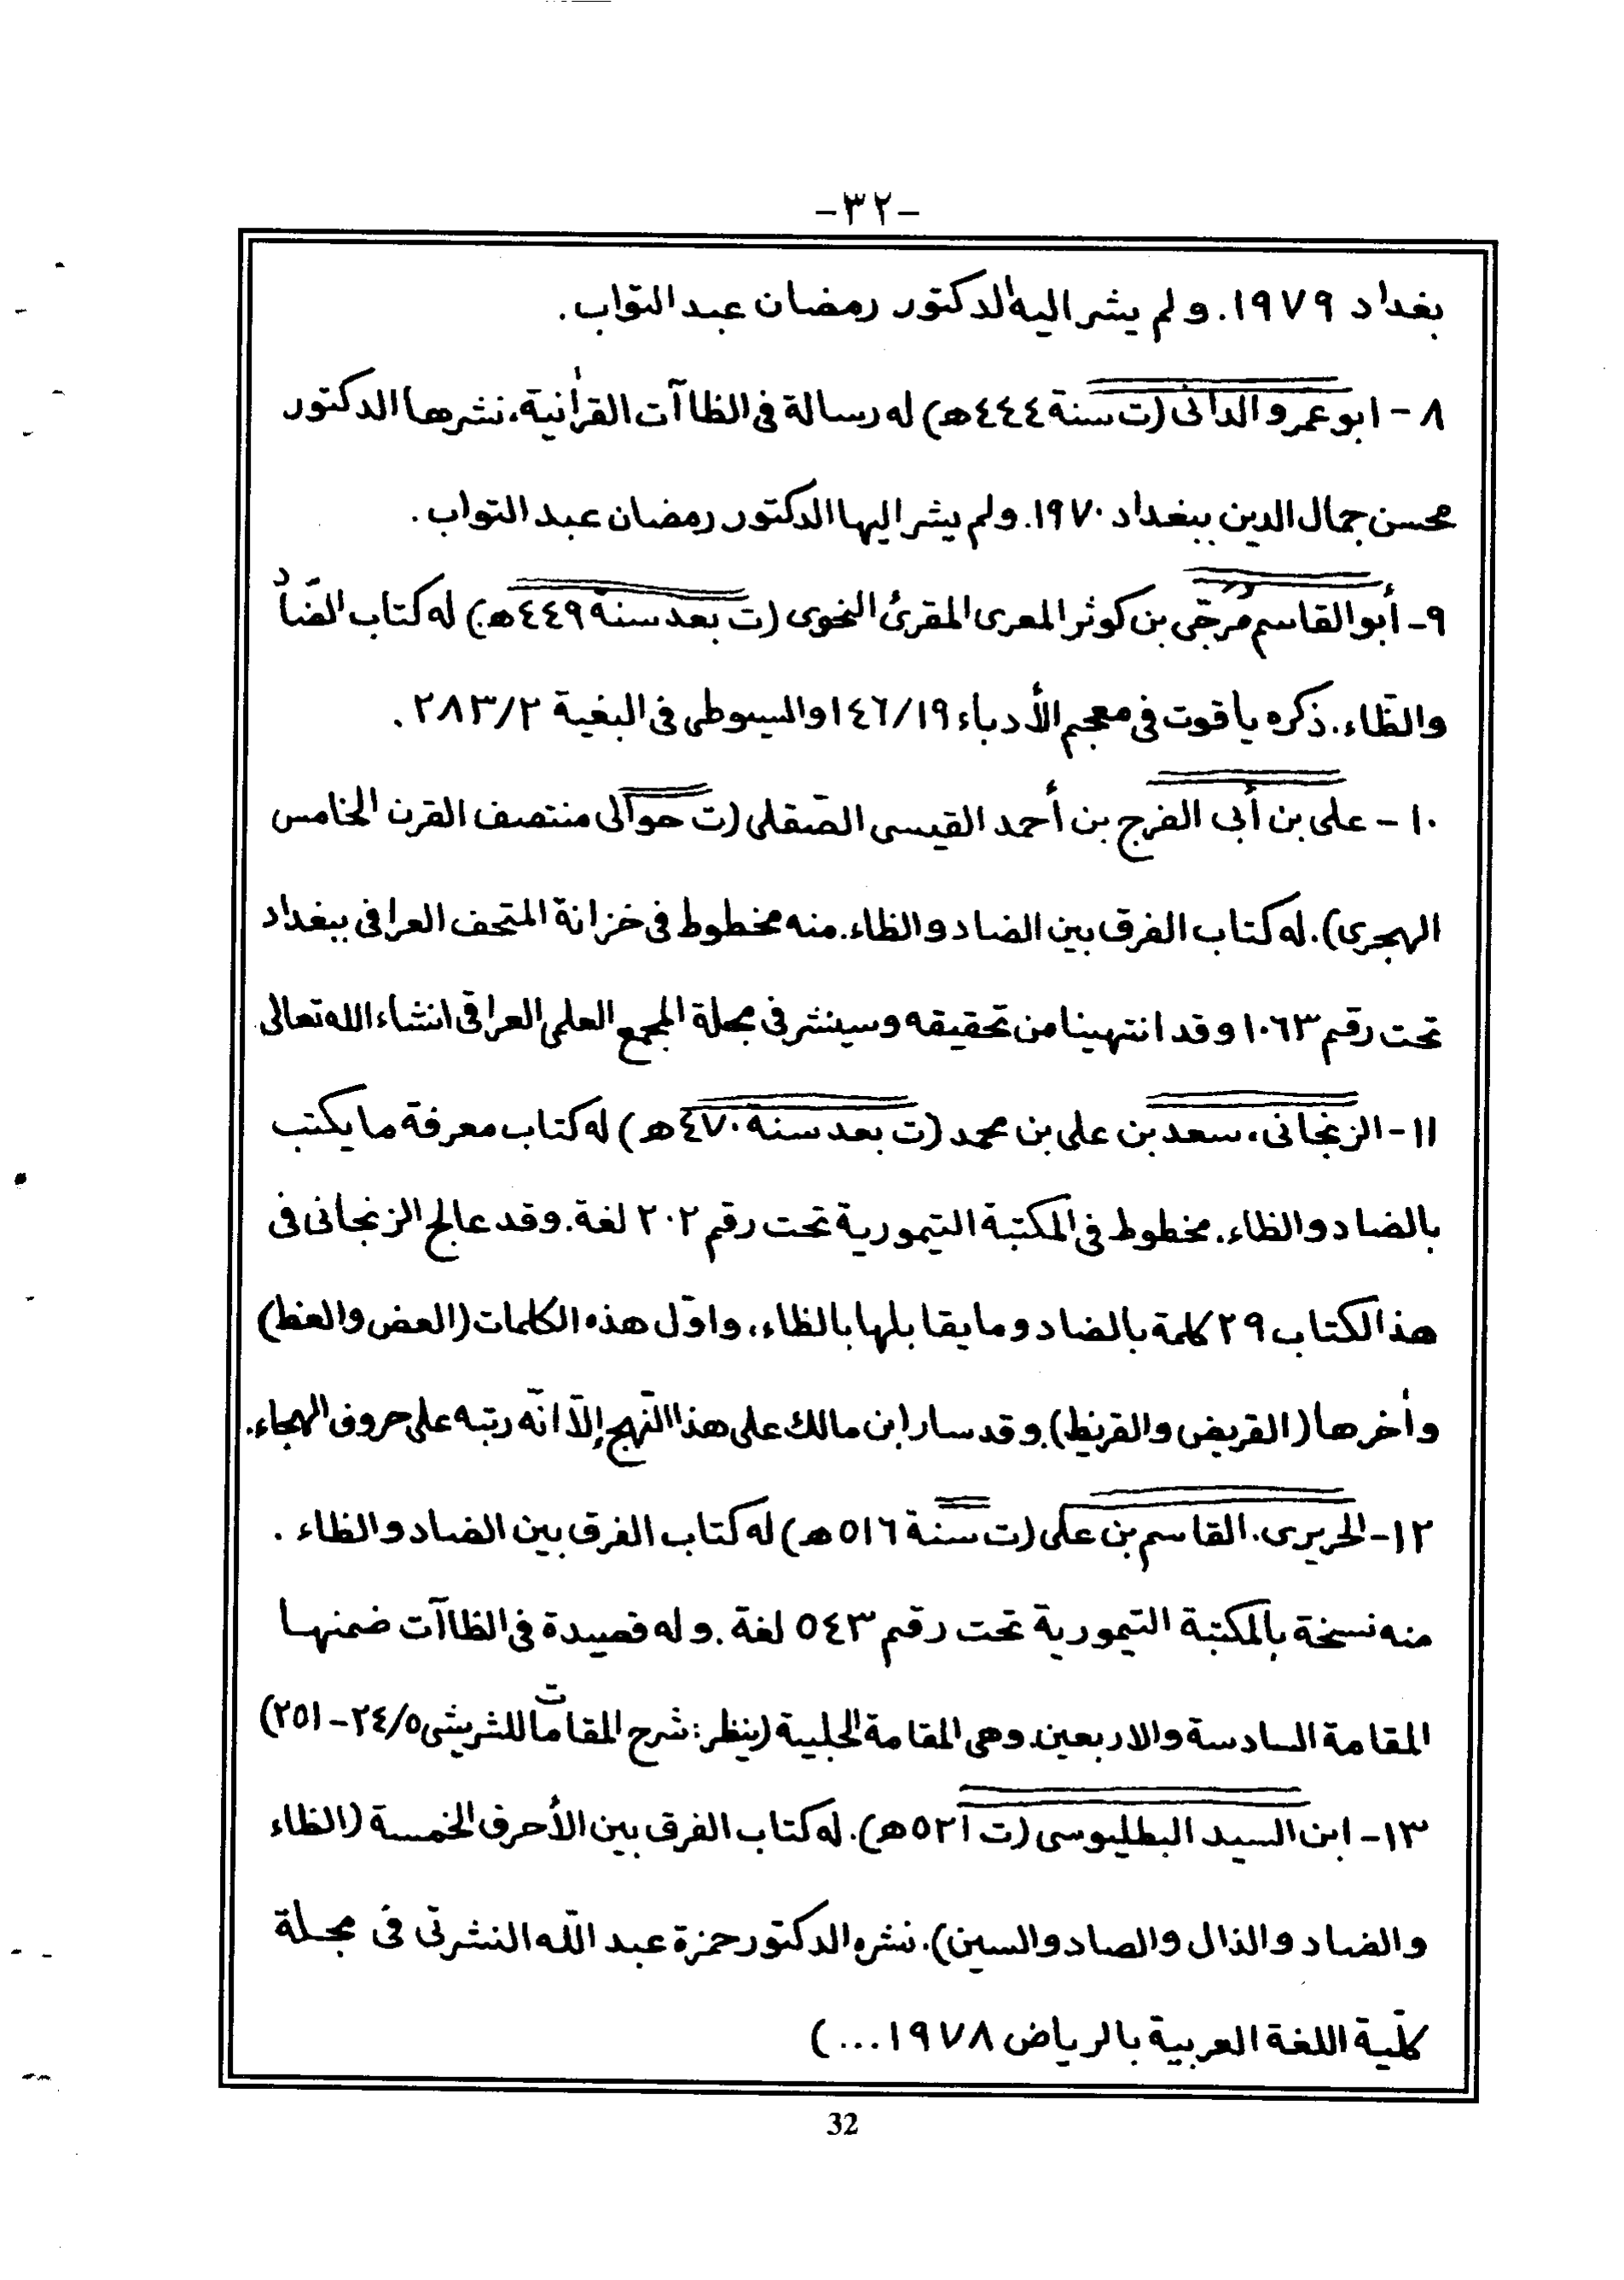 -٣٢-
بغداد ١٩٧٩. ولم يشر اليه الدكتور رمضان عبد التواب.
٨ - ابو عمرو الدانى (ت سنة ٤٤٤ھ) له رسالة فى الظاآت القرأنية، نشرها الدكتور
محسن جمال الدين ببغداد ١٩٧٠. ولم يشر اليها الدكتور رمضان عبد التواب.
٩- أبو القاسم مرجّى بن كوثر المعرى المقرئ النحوى (ت بعد سنة ٤٤٩ھ) له كتاب الضّاد
والظّاء. ذكره ياقوت فى معجم الأدباء ١٤٦/١٩ والسيوطى فى البغية ٢٨٣/٢.
١٠ - على بن أبى الفرج بن أحمد القيسى الصّقلى (ت حوالى منتصف القرن الخامس
الهجرى). له كتاب الفرق بين الضاد والظاء. منه مخطوط فى خزانة المتحف العراقى ببغداد
تحت رقم ١٠٦٣ وقد انتهينا من تحقيقه وسينشر فى مجلة المجمع العلمى العراقى انشاء الله تعالى
١١- الزنجانى، سعد بن على بن محمد (ت بعد سنة ٤٧٠ھ) له كتاب معرفة ما يكتب
بالضاد والظاء. مخطوط فى المكتبة التيمورية تحت رقم ٢٠٢ لغة. وقد عالج الزنجانى فى
هذا الكتاب ٢٩ كلمة بالضاد وما يقابلها بالظاء، واوّل هذه الكلمات (العض والعظ)
وأخرها (القريض والقريظ). وقد سار ابن مالك على هذا النّهج إلاّ انّه رتبه على حروف الهجاء.
١٢- الحريرى. القاسم بن على (ت سنة ٥١٦ھ) له كتاب الفرق بين الضاد والظاء.
منه نسخة بالمكتبة التيمورية تحت رقم ٥٤٣ لغة. وله قصيدة فى الظاآت ضمنها
المقامة السادسة والاربعين. وهى المقامة الحلبية (ينظر: شرح المقامات للشريشى ٢٤/٥-٢٥١)
١٣- ابن السيد البطليوسى (ت ٥٢١ھ). له كتاب الفرق بين الأحرف الخمسة (الظاء
والضاد والذال والصاد والسين). نشره الدكتور حمزة عبد الله النشرتى فى مجلة
كلّية اللغة العربية بالرياض ١٩٧٨...)
32